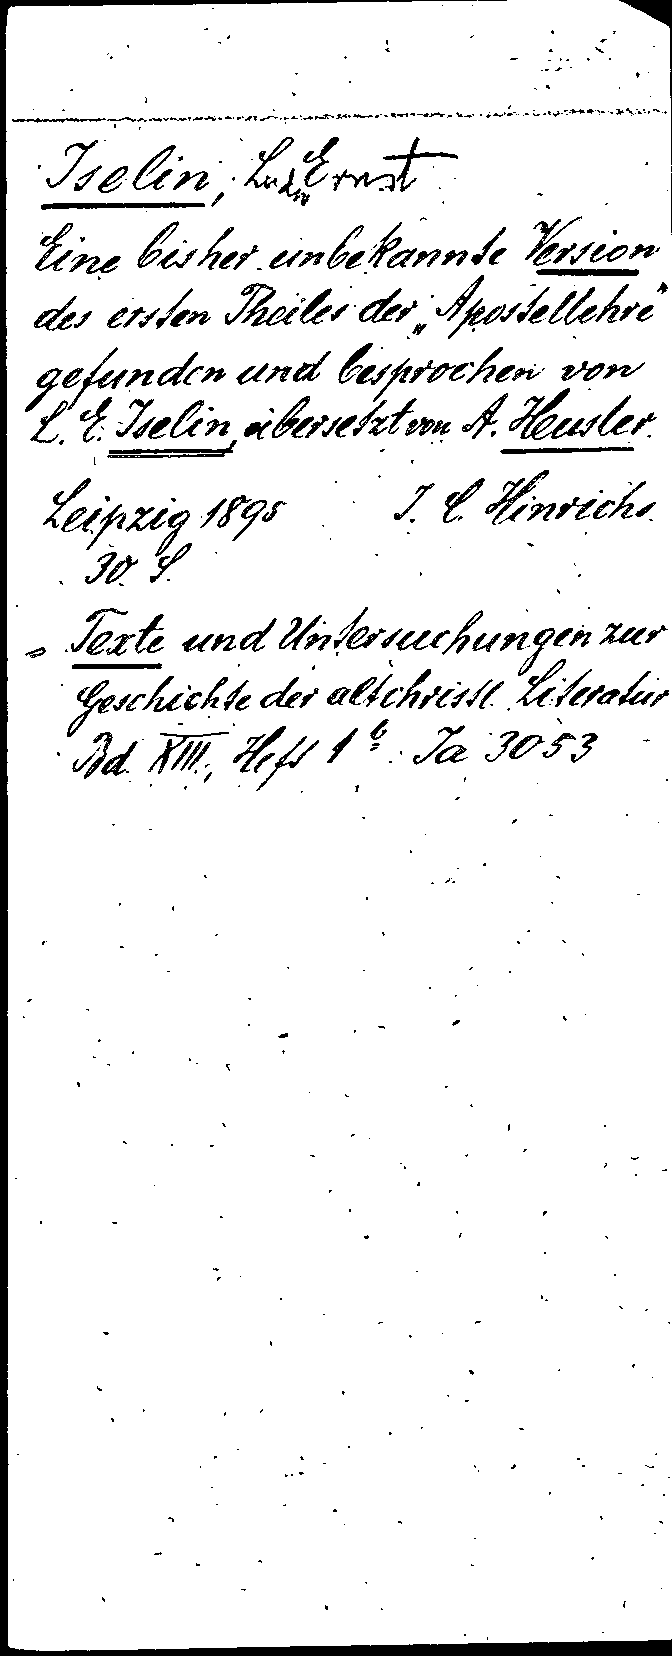 Iselin, Ludw Ernst
Eine bisher unbekannte Version
des ersten Theiles der „Apostellehre“
gefunden und besprochen von
L. E. Iselin, übersetzt von A. Heusler.
Leipzig 1895 J. C. Hinrichs.
30. S.
= Texte und Untersuchungen zur
Geschichte der altchristl. Literatur
Bd. XIII., Heft 1b. Ia 3053